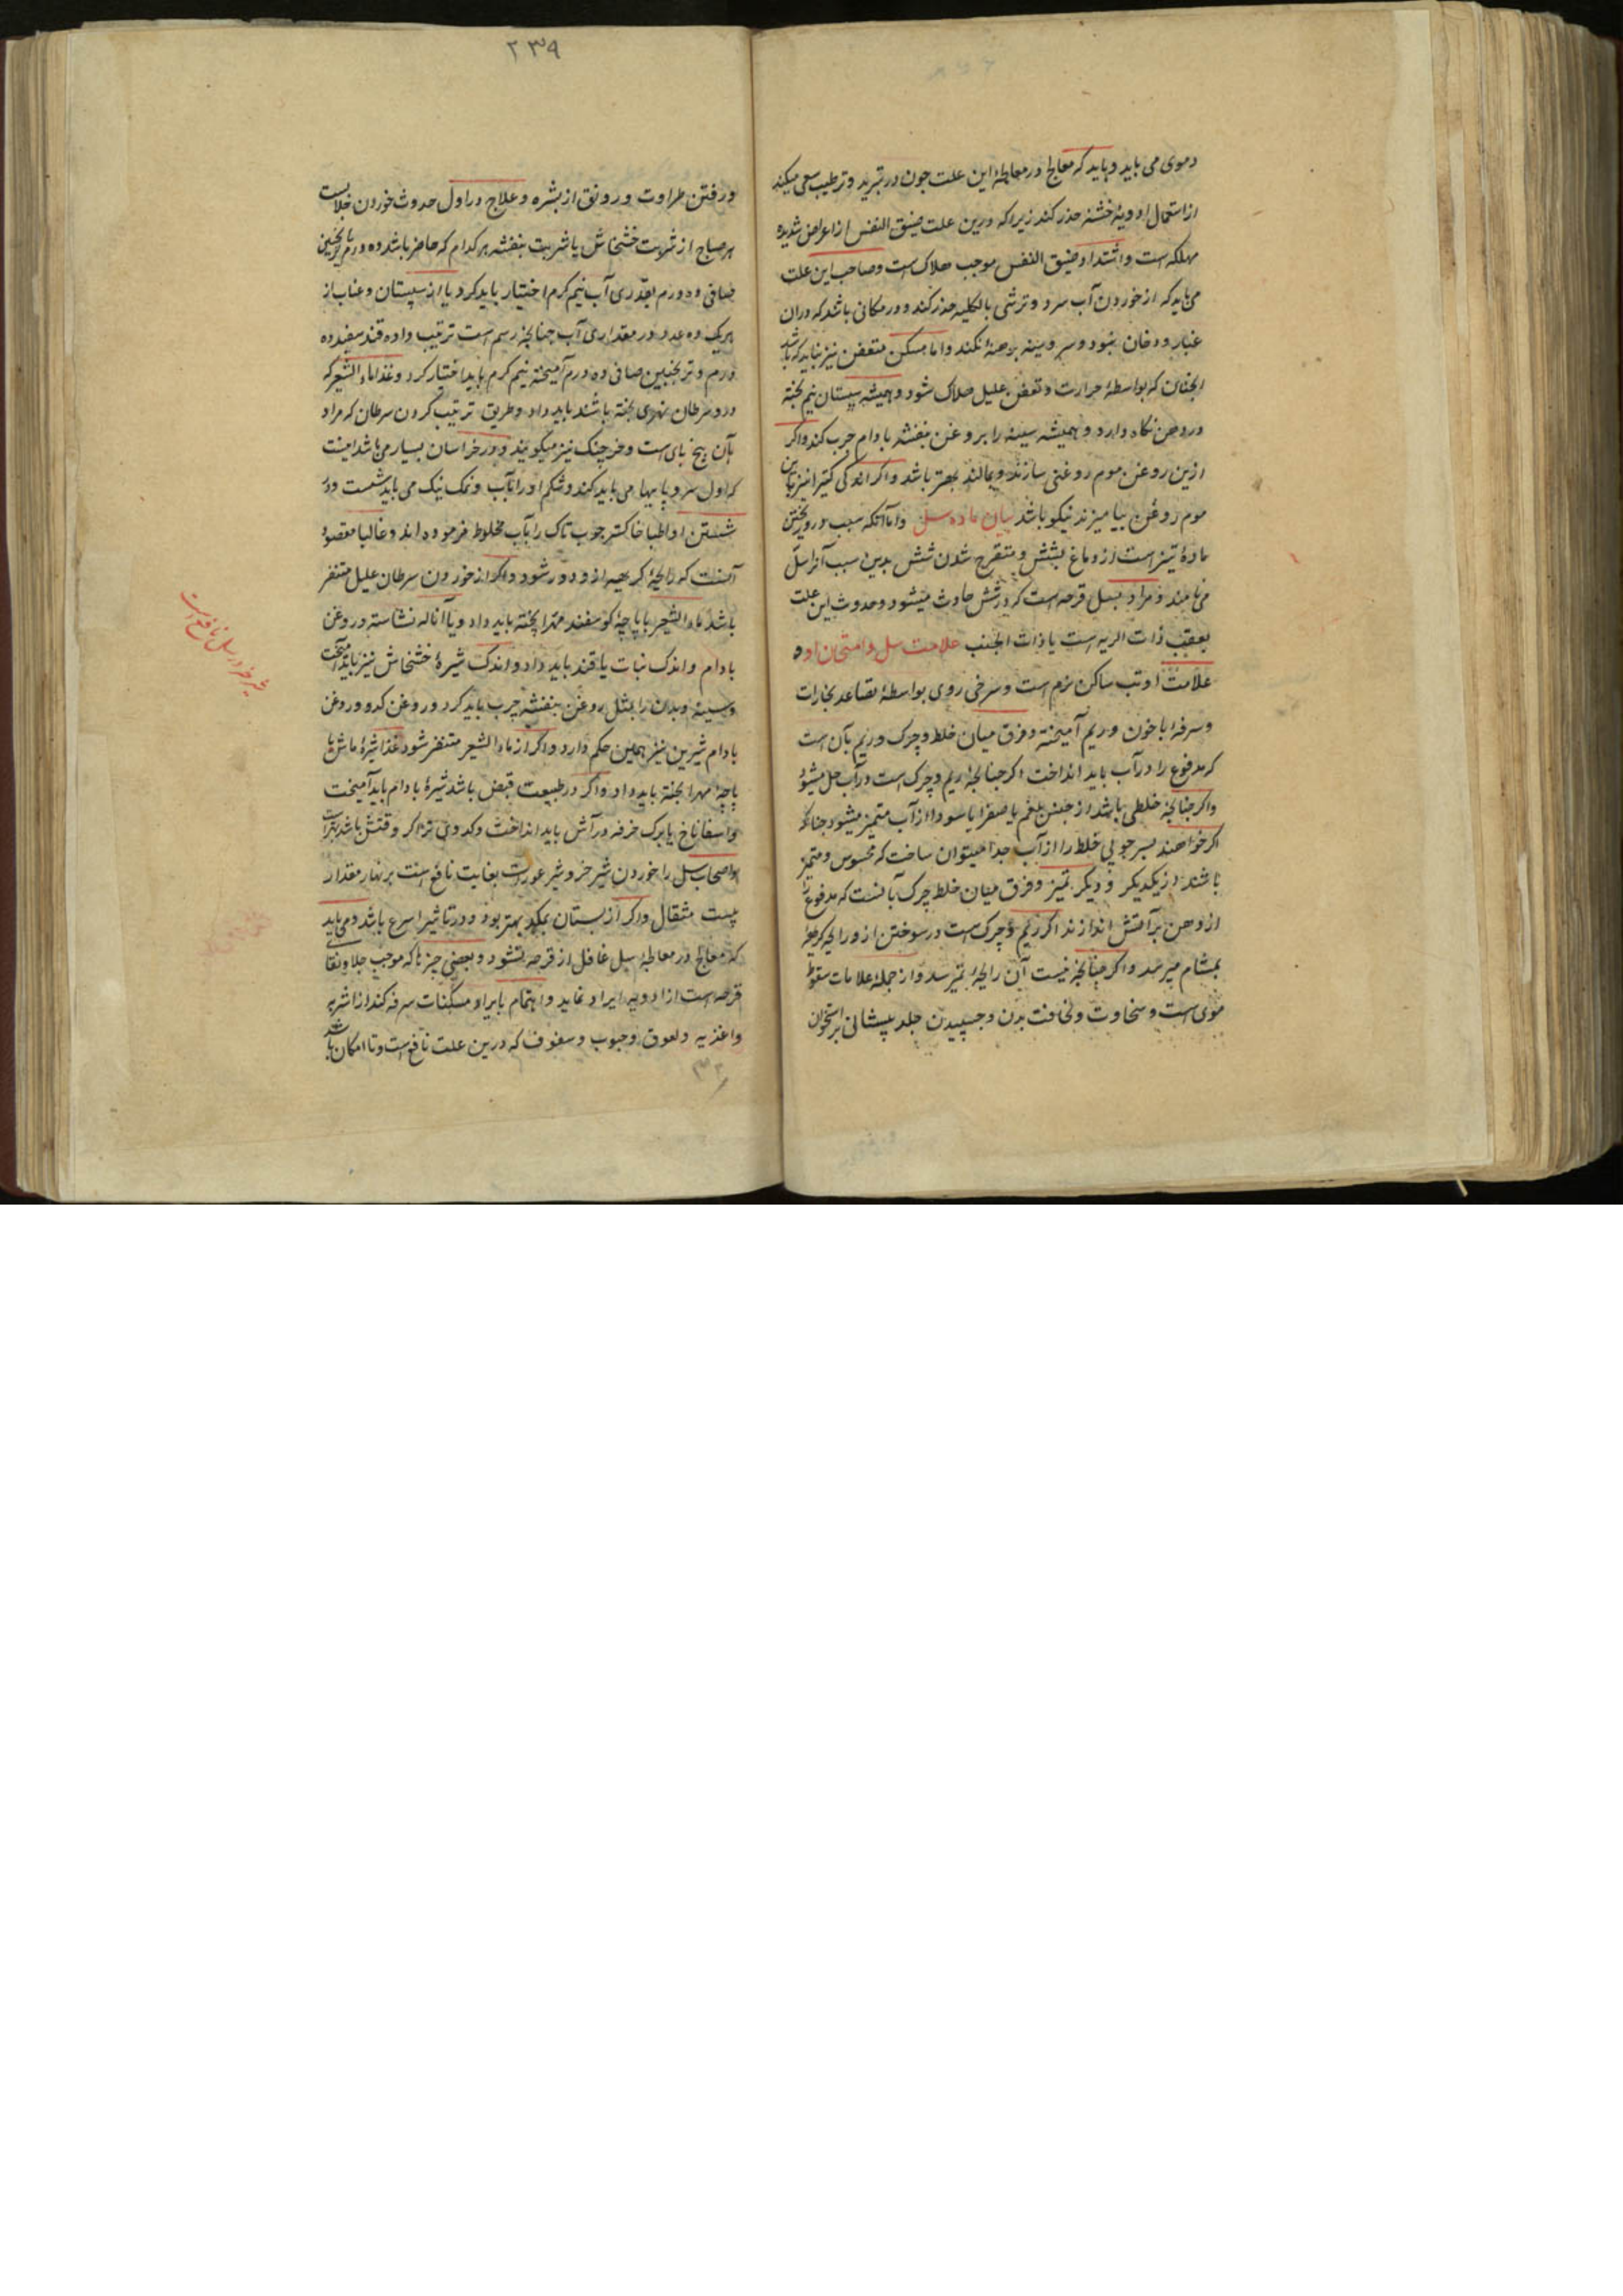 دموی می باید و باید که معالج در معالجهٔ این علت چون در تبرید و ترطیب سعی میکند
از استعمال ادویهٔ خشنه حذر کند زیرا که درین علت ضیق النفس از اعراض شدیده
مهلکه است و اشتداد ضیق النفس موجب هلاک است و صاحب این علت
می باید که از خوردن آب سرد و ترشی بالکلیه حذر کند و در مکانی باشد که دران
غبار و دخان نبود و سر و سینه برهنه نکند و اما مسکن متعفن نیز نباید که باشد
که بواسطهٔ حرارت و تعفن علیل هلاک شود و همیشه سپستان نیم پخته
در دهن نگاه دارد و همیشه سینه را بروغن بنفشه بادام چرب کند و اکر
ازین روغن موم روغنی سازند و بمالند بهتر باشد و اکر اندکی کتیرا نیز باین
موم روغن بیامیزند نیکو باشد بیان ماده سل و اما آنکه سبب او ریختن
مادهٔ تیز است از دماغ بشش و متقرح شدن شش بدین سبب آنرا سل
می نامند و مراد بسل قرحه است که در شش حادث میشود و حدوث این علت
بعقب ذات الریه است یا ذات الجنب علامت سل و امتحان او
علامت او تب ساکن نرم است و سرخی روی بواسطهٔ تصاعد بخارات
و سرفهٔ با خون و ریم آمیخته و فرق میان خلط و چرک و ریم بآن است
که مدفوع را در آب باید انداخت اکر چنانچه ریم و چرک است در آب حل میشود
و اکر چنانچه خلطی باشد از جنس بلغم یا صفرا یا سودا از آب متمیز میشود چنانکه
اکر خواهند بسر چوبی خلط را از آب جدا میتوان ساخت که محسوس و متمیز
باشند از یکدیکر و دیکر تمیز و فرق میان خلط و چرک بآنست که مدفوع را
از دهن بر آتش اندازند اکر ریم و چرک است در سوختن ازو رایحهٔ کریهه
بمشام میرسد و اکر چنانچه نیست آن رایحه نمیرسد و از جملهٔ علامات سقوط
موی است و سخاوت و نحافت بدن و چسپیدن جلد پیشانی بر استخوان
۲۳۹
و رفتن طراوت و رونق از بشره و علاج در اول حدوث خوردن جلابست
هر صباح از شربت خشخاش یا شربت بنفشه هر کدام که حاضر باشد ده درم با ترنجبین
صافی ده درم بقدری آب نیم کرم اختیار باید کرد و یا از سپستان و عناب از
هر یک ده عدد در مقداری آب چنانچه رسم است ترتیب داده قند سفید ده
درم و ترنجبین صافی ده درم آمیخته نیم کرم باید اختیار کرد و غذا ماء الشعیر که
درو سرطان نهری پخته باشند باید داد و طریق ترتیب کردن سرطان که مراد
بآن پنج پای است و خرچنک نیز میکویند و در خراسان بسیار می باشد اینست
که اول سر و پایها می باید کند و شکم او را بآب و نمک نیک می باید شست و در
شستن او اطبا خاکستر چوب تاک را بآب مخلوط فرموده اند و غالبا مقصود
آنست که رایحهٔ کریهه ازو دور شود و اکر از خوردن سرطان علیل متنفر
باشد ماء الشعیر با پاچهٔ کوسفند مهرا پخته باید داد و یا آنکه نشاسته و روغن
بادام و اندک نبات یا قند باید داد و اندک شیرهٔ خشخاش نیز باید آمیخت
و سینه و بدن را بمثل روغن بنفشه چرب باید کرد و روغن کدو و روغن
بادام شیرین نیز همین حکم دارد و اکر از ماء الشعیر متنفر شود غذا شیرهٔ ماش با
پاچهٔ مهرا پخته باید داد و اکر در طبیعت قبض باشد شیرهٔ بادام باید آمیخت
و اسفاناخ یا برک خرفه در آش باید انداخت و کدوی تر اکر وقتش باشد بهتر است
و اصحاب سل را خوردن شیر خر و شیر عورت بغایت نافع است بر نهار مقدار
بیست مثقال و اکر از پستان بمکد بهتر بود و در تاثیر اسرع باشد و می باید
که معالج در معالجهٔ سل غافل از قرحه نشود و بعضی چیزها که موجب جلا و نقای
قرحه است از ادویه ایراد نماید و اهتمام بایراد مسکنات سرفه کند از اشربه
و اغذیه و لعوق و حبوب و سفوف که درین علت نافع است و تا امکان باشد
شیر خر در سل نافع است